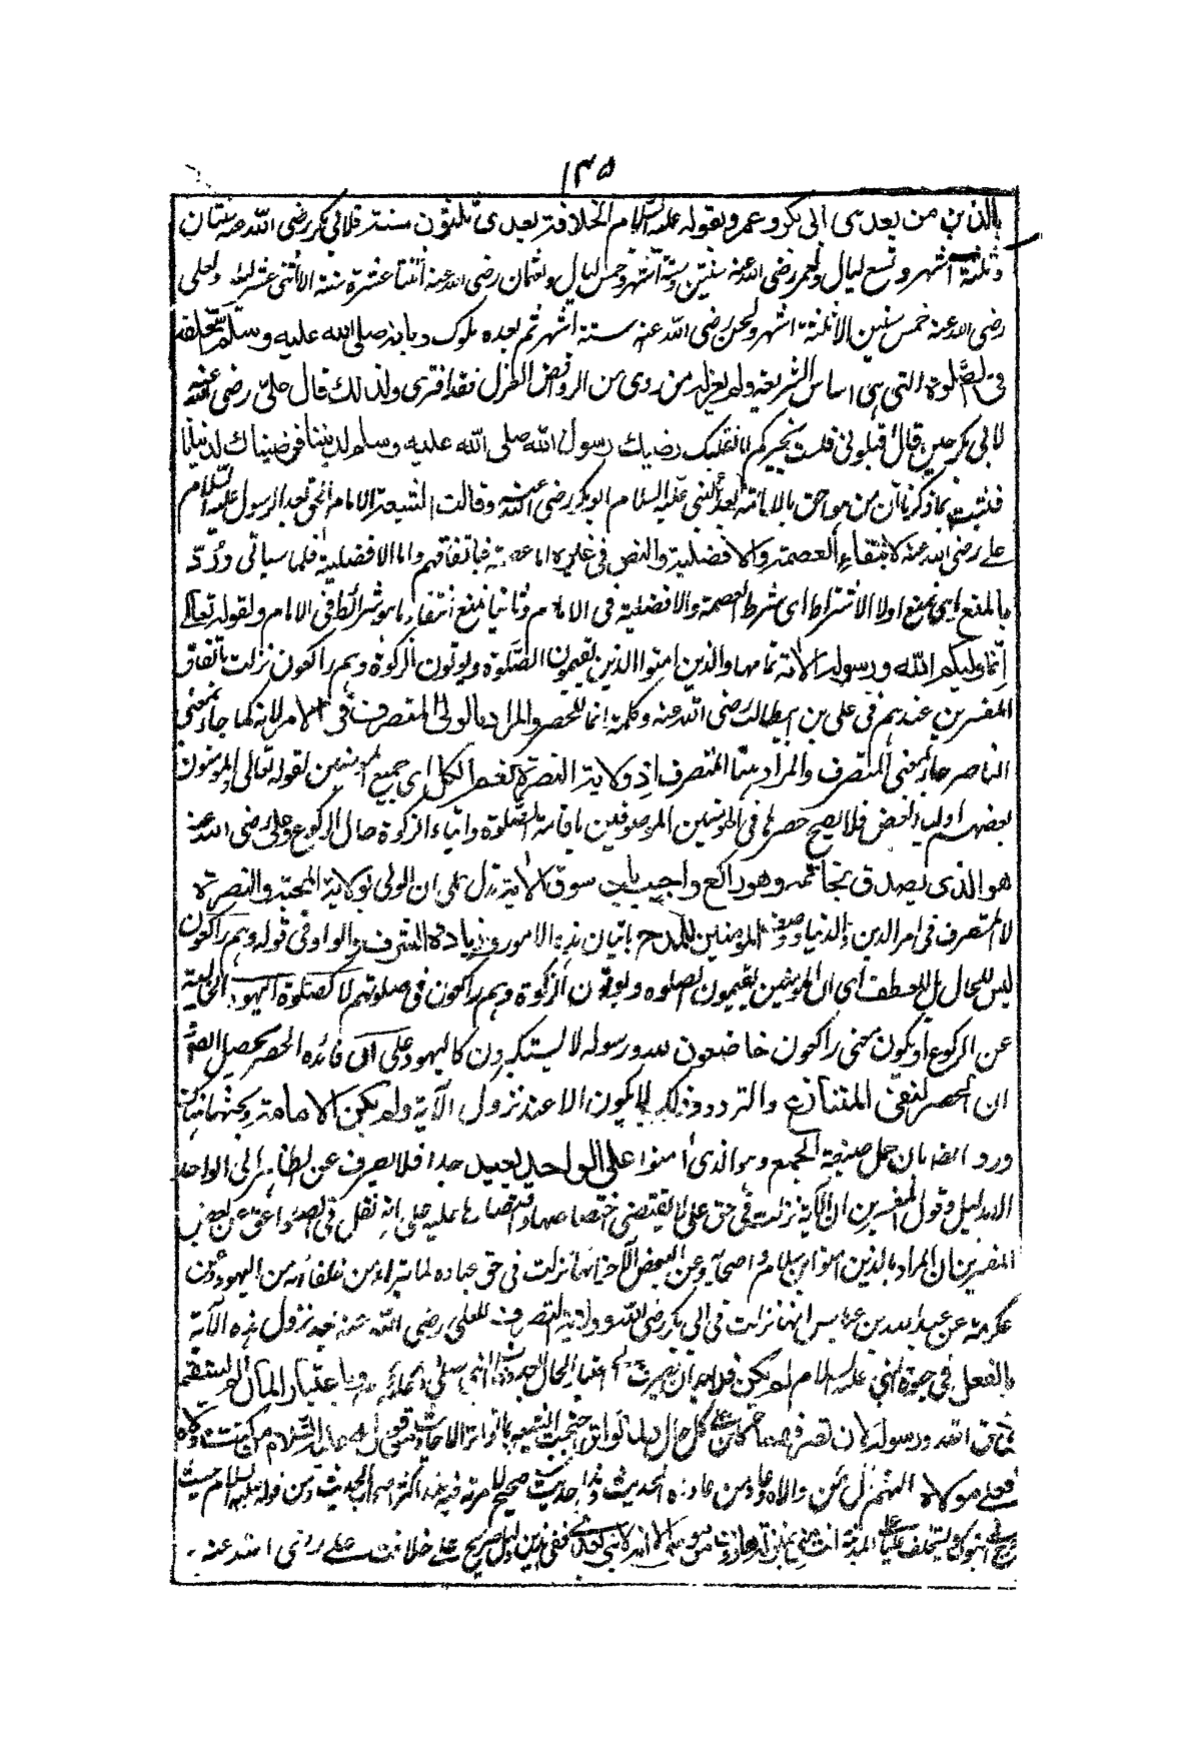 ١٣٥
بالذين من بعدى ابى بكر وعمر وبقوله عليه السلام الخلافة بعدى ثلثون سنة فلابى بكر رضى الله عنه سنتان
وثلثة اشهر وتسع ليال ولعمر رضى الله عنه سنين وستة اشهر وخمس ليال ولعثمان رضى الله عنه اثنتا عشرة سنة الا اثنى عشر ليلة ولعلى
رضى الله عنه خمس سنين الا ثلثة اشهر ولحسن رضى الله عنه ستة اشهر ثم بعده ملوك وبانه صلى الله عليه وسلم استخلفه
فى الصلوة التى هى اساس الشريعة ولم يعزله ومن روى من الروافض العزل فقد افترى ولذلك قال على رضى الله عنه
لابى بكر حين قال اقيلونى فلست بخيركم لا نقيلك رضيك رسول الله صلى الله عليه وسلم لديننا فرضيناك لدنيانا
فثبت بما ذكرنا ان من هو احق بالامامة بعد النبى عليه السلام ابو بكر رضى الله عنه وقالت الشيعة الامام الحق بعد الرسول عليه السلام
على رضى الله عنه لانتفاء العصمة والافضلية والنص فى غيره اما عصمة فباتفاقهم واما الافضلية فلما سيأتى ورد
بالمنع اى بمنع اولا الاشتراط اى شرط العصمة والافضلية فى الامام وثانيا نمنع انتفاء ما هو شرائط فى الامام ولقوله تعالى
انما وليكم الله ورسوله الآية تمامها والذين امنوا الذين يقيمون الصلوة ويوتون الزكوة وهم راكعون نزلت باتفاق
المفسرين عندهم فى على بن ابيطالب رضى الله عنه وكلمة انما للحصر والمراد بالولى المتصرف فى الامر لانه كما جاء بمعنى
الناصر جاء بمعنى المتصرف والمراد هنا المتصرف اذ ولاية النصرة تعم الكل اى جميع المومنين لقوله تعالى والمومنون
بعضهم اولياء بعض فلا يصح حصرها فى المومنين الموصوفين باقامة الصلوة وايتاء الزكوة حال الركوع وعلى رضى الله عنه
هو الذى تصدق بخاتمه وهو راكع واجيب بان سوق الآية يدل على ان الولى بولاية المحبة والنصرة
لا المتصرف فى امر الدين والدنيا ووصف المومنين للمدح باتيان هذه الامور وزيادة الشرف والواو فى قوله وهم راكعون
ليس للحال بل للعطف اى ان المومنين يقيمون الصلوه ويوتون الزكوة وهم راكعون فى صلوتهم لا كصلوة اليهود الخالية
عن الركوع او يكون معنى راكعون خاضعون لله ورسوله لا يستكبرون كاليهود على ان فائده الحصر
ان الحصر لنفى المتنازع والتردد وذلك لا يكون الا عند نزول الآية ولم يكن الامامة
ورد ايضا بان حمل صيغة الجمع وهو الذى امنوا على الواحد بعيد جدا فلا يصرف عن الظاهر الى الواحد
الا بدليل وقول المفسرين ان الآية نزلت فى حق على لا يقتضى اختصاصها واقتصارها عليه على انه نقل فى الصواعق عن بعض
المفسرين ان المراد بالذين امنوا ابن سلام واصحابه وعن البعض الآخر انها نزلت فى حق عباده لما تبراء من خلفائه من اليهود وعن
عكرمة عن عبد الله بن عباس انها نزلت فى ابى بكر رضى الله عنه وولاية التصرف للعلى رضى الله عنه عند نزول هذه الآية
بالفعل فى حيوة النبى عليه السلام لم يكن فلابد ان وباعتبار المآل لا يستقيم
فى حق الله ورسوله لان تصرفهما على كل حال
فعلى مولاه اللهم وال من والاه وعاد من عاداه الحديث وهذا حديث صحيح لا مرية فيه عند اكثر اصحاب الحديث ومن قوله عليه السلام حيث
على المدينة انت منى بمنزلة هارون من موسى الا انه لا نبى بعدى ففى هذين دليل صريح على خلافت على رضى الله عنه